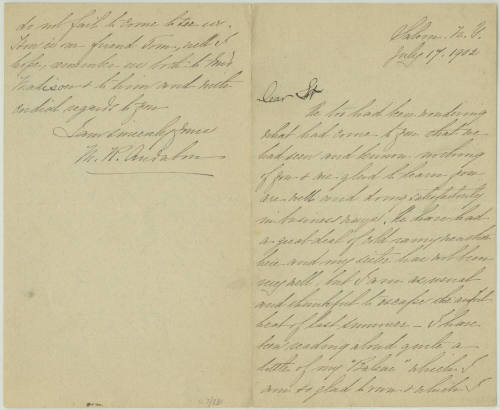 Salem N. Y.
July 17, 1902
Dear Sir
We too had been wondering
what had come to you that we
had seen and known nothing
of you & are glad to learn you
are well and doing satisfactorily
in business ways. We have had
a great deal of cold rainy weather
here and my sister has not been
very well, but I am as usual
and thankful to escape the awful
heat of last summer – I have
been reading aloud quite a
little of my "Balzac" which I
am so glad to own & which I
do not fail to come to see us.
is our friend Tom, well I
hope, remember me both to Mrs
Madison & to him and with
cordial regards to you
I am sincerely yours
M. R. Audubon